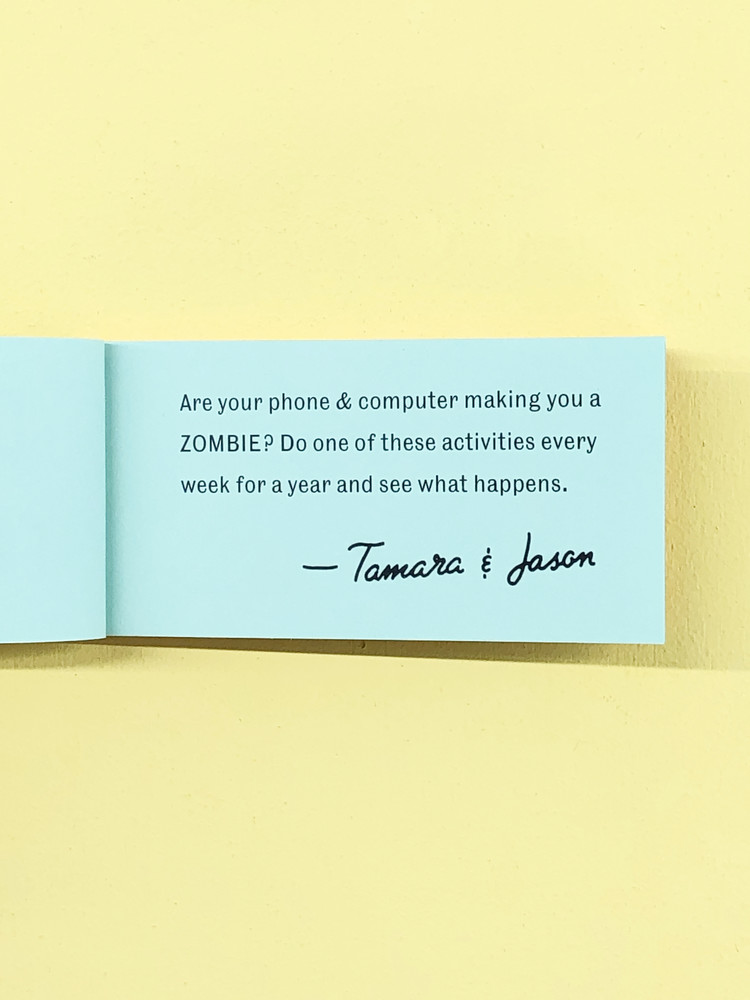 Are your phone & computer making you a
ZOMBIE? Do one of these activities every
week for a year and see what happens.
— Tamara & Jason